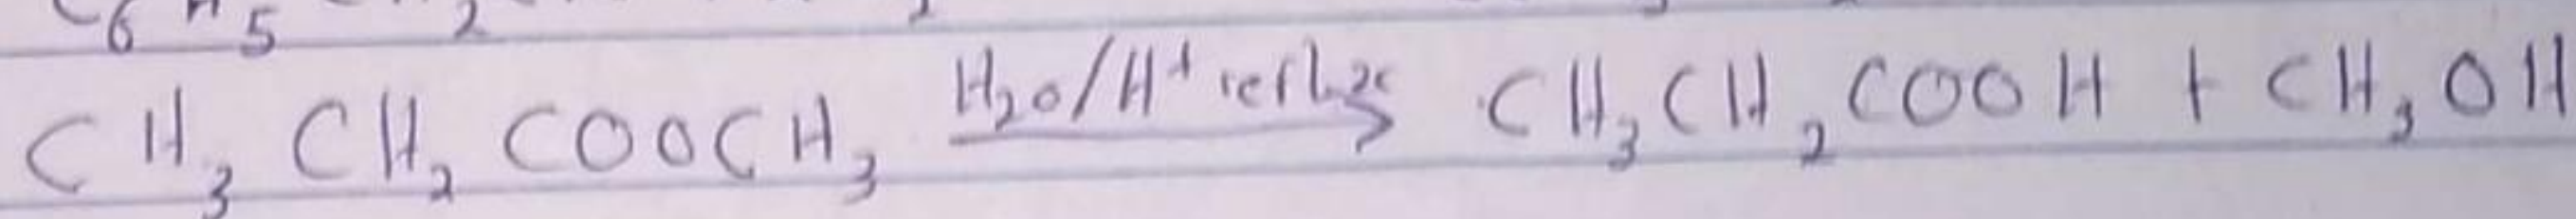 C6H5
CH3 CH2 COOCH3 H2O/H+ reflux CH3CH2COOH + CH3OH